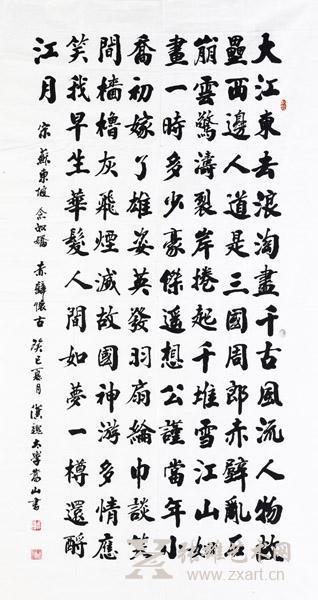 大江東去浪淘盡千古風流人物故
壘西邊人道是三國周郎赤壁亂石
崩雲驚濤裂岸捲起千堆雪江山如
畫一時多少豪傑遙想公謹當年小
喬初嫁了雄姿英發羽扇綸巾談笑
間檣櫓灰飛煙滅故國神游多情應
笑我早生華髮人間如夢一樽還酹
江月
宋蘇東坡念奴嬌赤壁懷古癸巳夏月漢大學嵩山書
张雄艺术网
www.zxart.cn